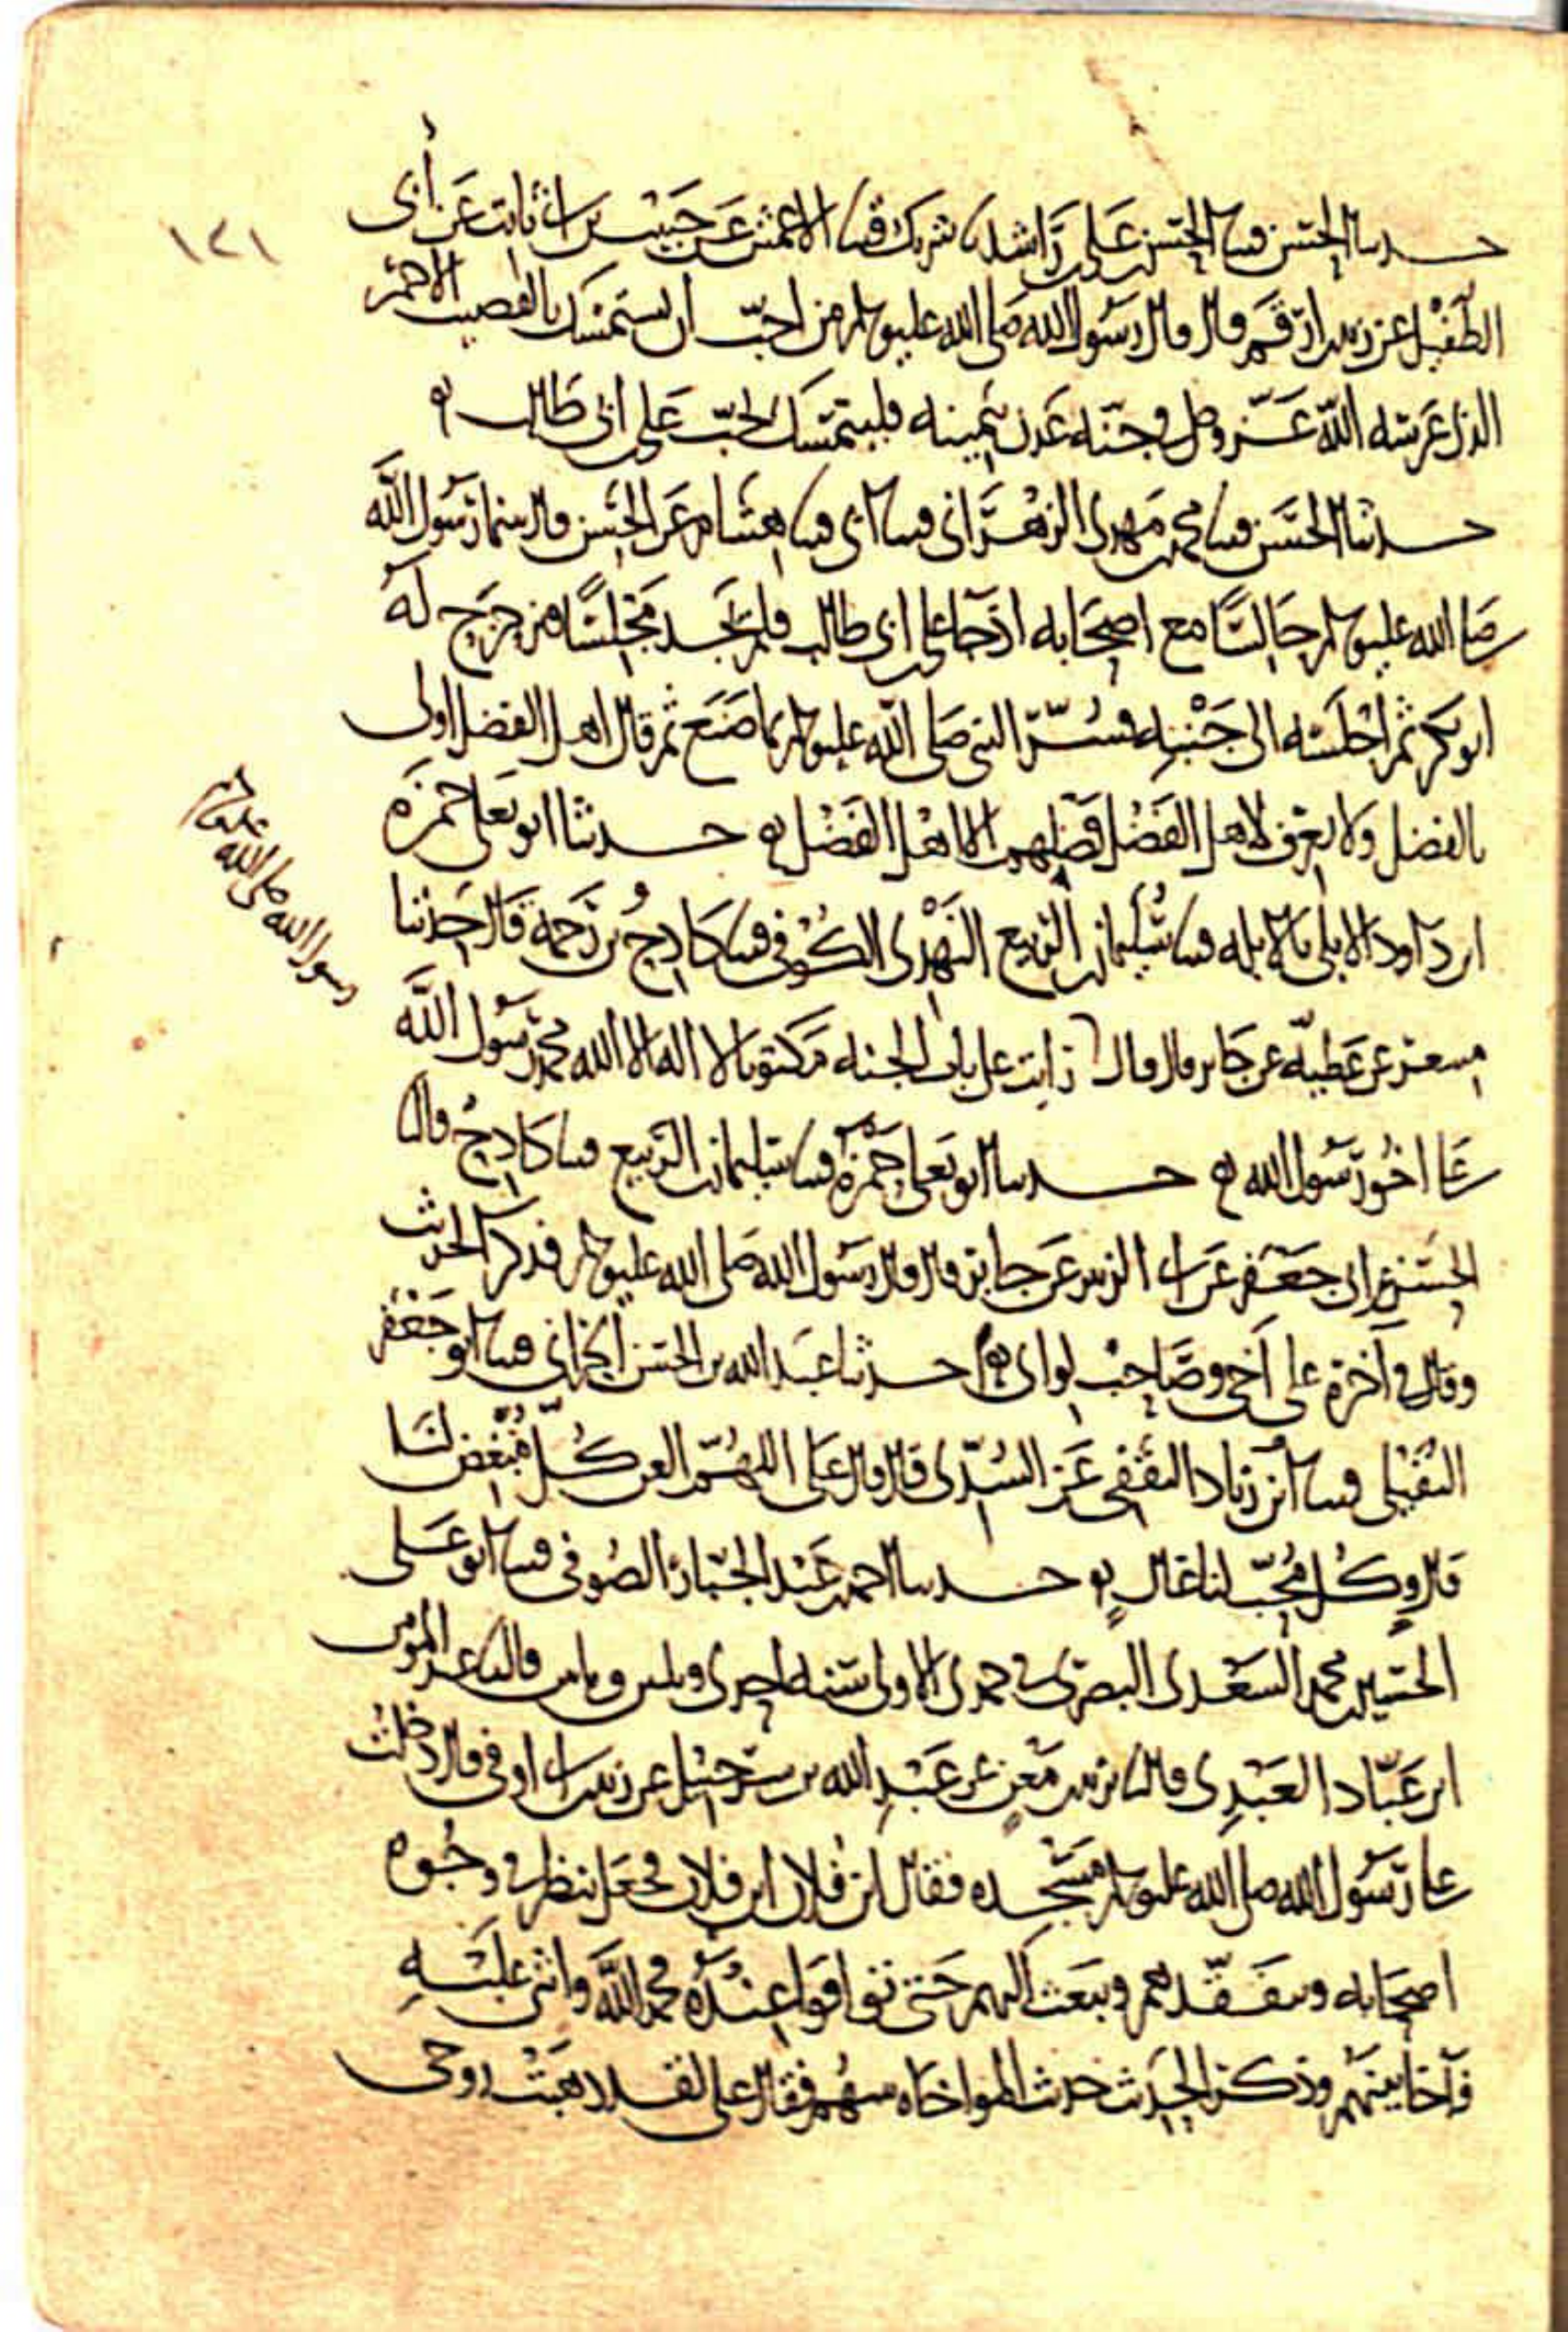 ١٤١
حدثنا الحسن قثنا الحسن بن علي بن راشد نا شريك قثنا الاعمش عن حبيب بن ابي ثابت عن أبي
الطفيل عن زيد بن ارقم قال قال رسول الله صلى الله عليه وسلم من احب ان يستمسك بالقضيب الاحمر
الذي غرسه الله عز وجل في جنة عدن بيمينه فليتمسك بحب علي بن ابي طالب ه
حدثنا الحسن قثنا محمد بن مهدي الزهراني قثنا ابي قثنا هشام عن الحسن قال بينما رسول الله
صلى الله عليه وسلم جالسا مع اصحابه اذ جا علي بن ابي طالب فلم يجد مجلسا فتزحزح له
ابو بكر ثم اجلسه الى جنبه فسر النبي صلى الله عليه وسلم بما صنع ثم قال اهل الفضل اولى
بالفضل ولا يعرف لاهل الفضل فضلهم الا اهل الفضل ه حدثنا ابو يعلى حمزة
ابن داود الابلي بالابله قثنا سليمان بن الربيع النهدي الكوفي قثنا كادح بن رحمة قال حدثنا
مسعر عن عطية عن جابر قال قال رايت على باب الجنه مكتوبا لا اله الا الله محمد رسول الله
رسول الله صلى الله عليه وسلم
علي اخو رسول الله ه حدثنا ابو يعلى حمزة قثنا سليمان بن الربيع قثنا كادح قال نا
الحسن بن ابي جعفر عن ابي الزبير عن جابر قال قال رسول الله صلى الله عليه وسلم فذكر الحديث
وقال في آخره علي اخي وصاحب لواي ه حدثنا عبد الله بن الحسن الحراني قثنا ابو جعفر
النفيلي قثنا ابن زياد الثقفي عن السدي قال قال علي اللهم العن كل مبغض لنا
قال وكل محب لنا غال ه حدثنا احمد بن عبد الجبار الصوفي قثنا ابو علي
الحسين بن محمد السعدي البصري في جمدى الاولى سنه احدى وثلثين ومايتين قال نا عبد المومن
ابن عباد العبدي قال نا يزيد بن معن عن عبد الله بن شرحبيل عن زيد بن ابي اوفى قال دخلت
على رسول الله صلى الله عليه وسلم مسجده فقال اين فلان اين فلان فجعل ينظر في وجوه
اصحابه ويتفقدهم ويبعث اليهم حتى توافوا عنده فحمد الله واثنى عليه
فآخا بينهم وذكر الحديث حديث المواخاه بينهم فقال علي لقد ذهبت روحي